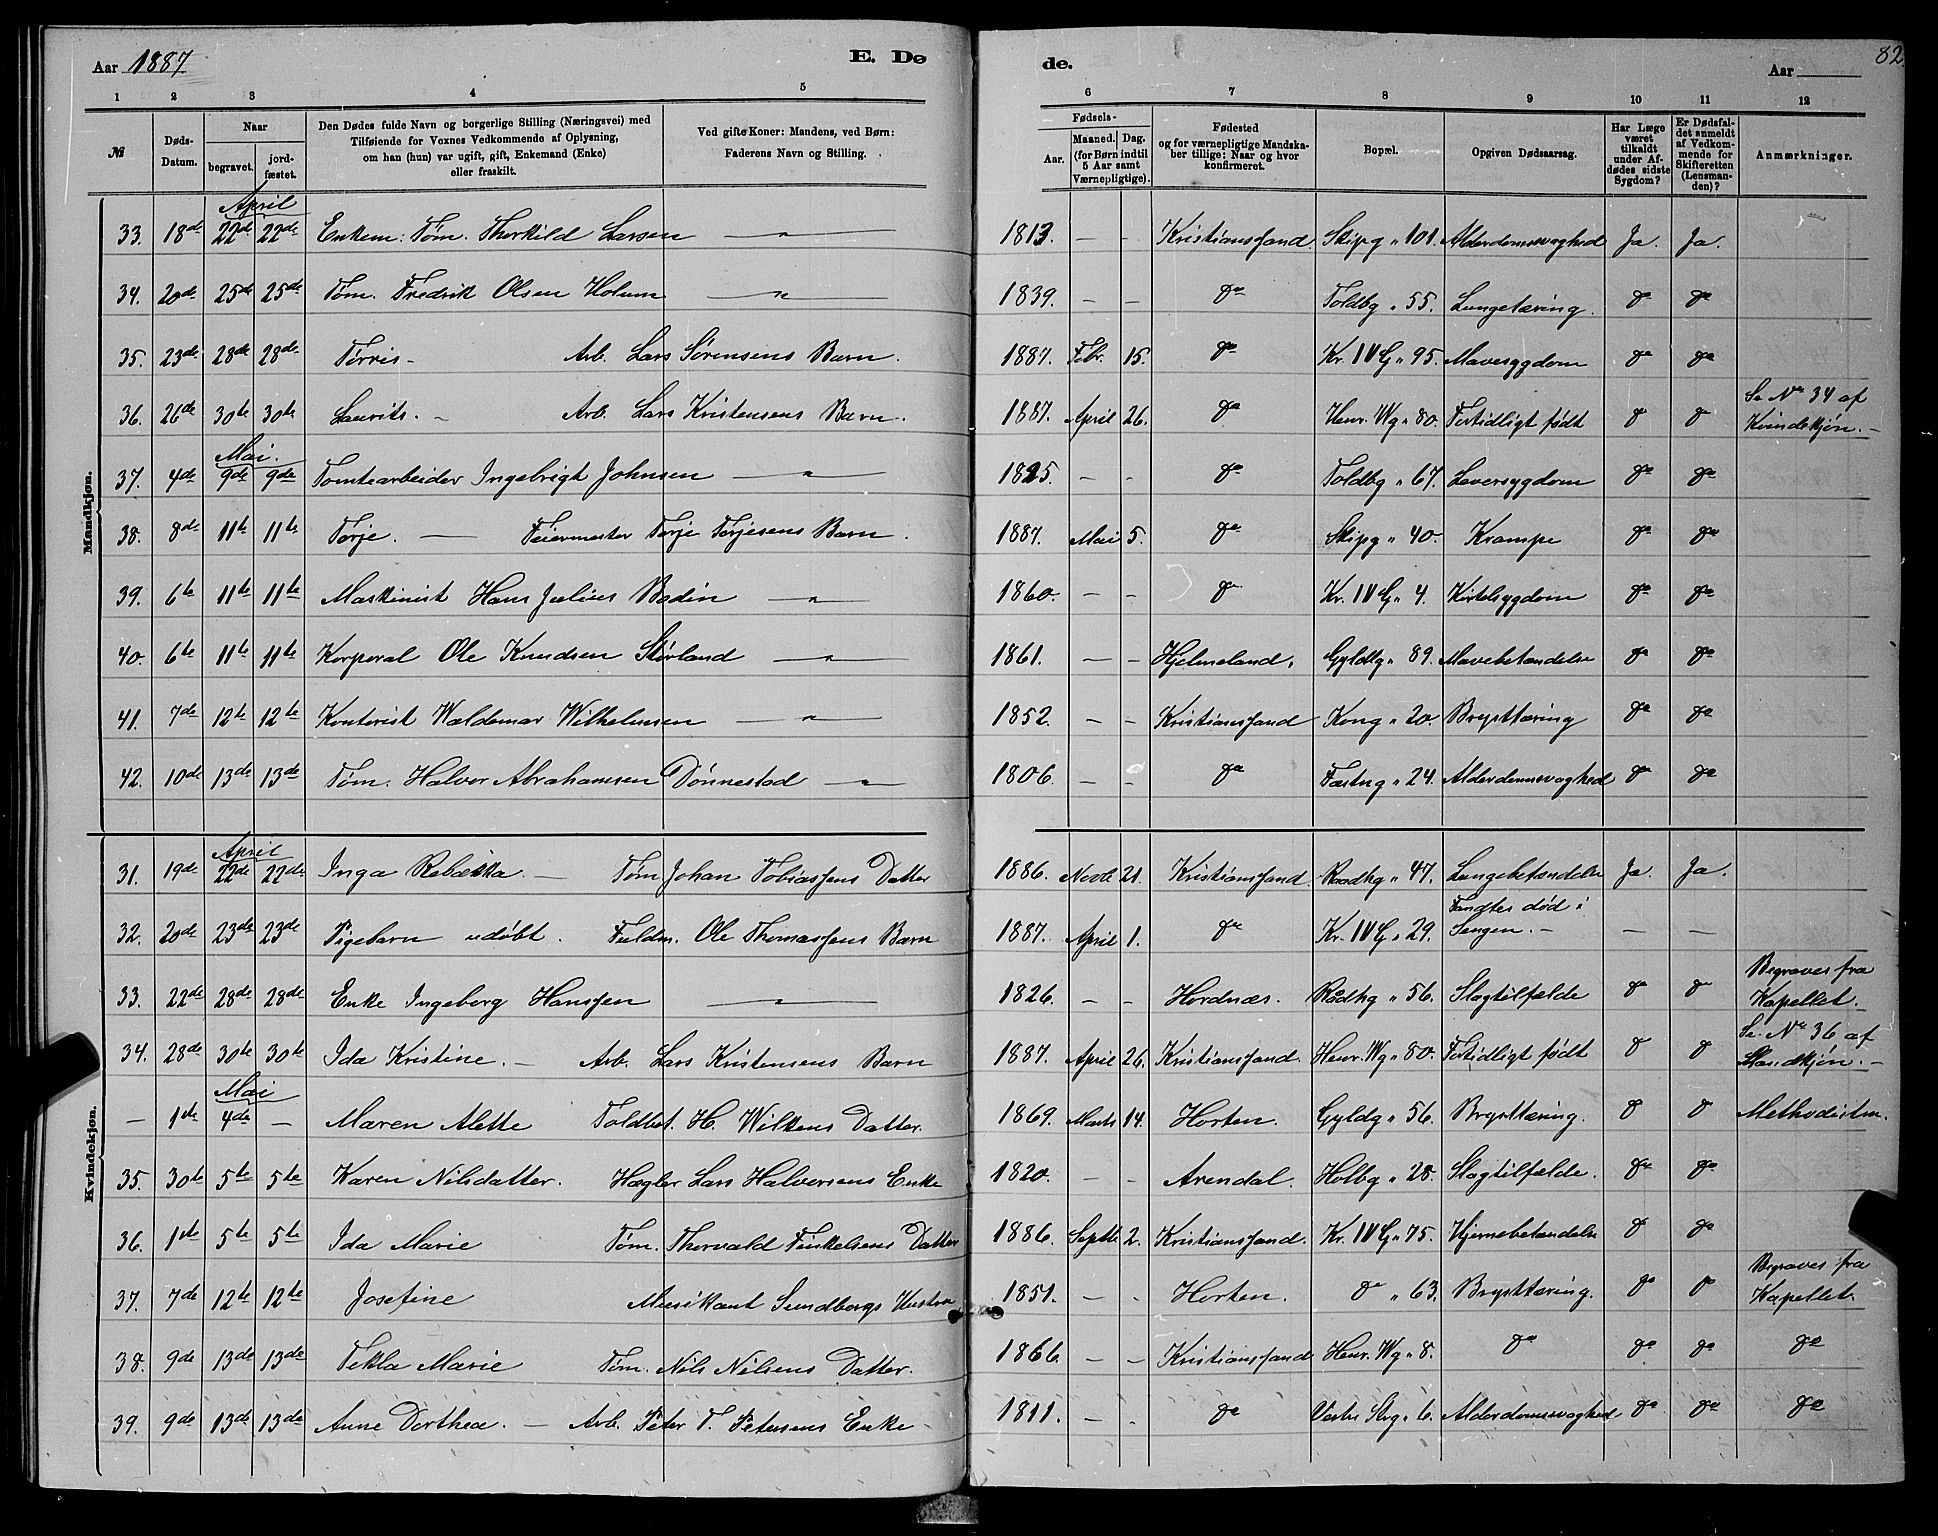 Aar 1887
E. Dø
de.
Aar
82.
1 2 3 4 5 6 7 8 9 10 11 12
№
Døds-Datum.
Naar
begravet.
jord-fæstet.
Den Dødes fulde Navn og borgerlige Stilling (Næringsvei) med
Tilføiende for Voxnes Vedkommende af Oplysning,
om han (hun) var ugift, gift, Enkemand (Enke)
eller fraskilt.
Ved gifte Koner: Mandens, ved Børn:
Faderens Navn og Stilling.
Fødsels-
Aar.
Maaned. Dag.
(for Børn indtil
5 Aar samt
Værnepligtige).
Fødested
og for værnepligtige Mandska-
ber tillige: Naar og hvor
konfirmeret.
Bopæl.
Opgiven Dødsaarsag.
Har Læge
været
tilkaldt
under Af-
dødes sidste
Sygdom?
Er Dødsfal-
det anmeldt
af Vedkom-
mende for
Skifteretten
(Lensman-
den)?
Anmærkninger.
Mandkjøn.
April
33. 18de 22de 22de Enkem. Tøm. Therkild Larsen — " — 1813. — — Kristianssand Skipg " 101. Alderdomssvaghed Ja. Ja.
34. 20de 25de 25de Tøm. Fredrik Olsen Holum — " — 1839. — — do Toldbg " 55. Lungetæring. do do
35. 23de 28de 28de Tørris – Arb. Lars Sørensens Barn. 1887. Febr. 15. do Kr. IV G " 95. Mavesygdom do do
36. 26de 30te 30te Laurits. – Arb. Lars Kristensens Barn. 1887. April 26. do Henr. Wg " 80. Fortidligt født do do Se No 34 af
Kvindekjøn. –
Mai.
37. 4de 9de 9de Tomtearbeider Ingebrigt Johnsen — " — 1825. — - do Toldbg " 67. Leversygdom do do
38. 8de 11te 11te Torje. — Feiermester Torje Torjesens Barn. 1887. Mai 5. do Skipg " 40. Krampe do do
39. 6te 11te 11te Maskinist Hans Julius Bodin — " — 1860. — — do Kr. IV G " 4. Kirtelsygdom do do
40. 6te 11te 11te Korporal Ole Knudsen Størland — " — 1861. — — Hjelmeland. Gyldbg " 89. Mavebetændelse do do
41. 7de 12te 12te Kontorist Waldemar Wilhelmsen — " — 1852. — — Kristianssand Kong " 20 Brysttæring do do
42. 10de 13de 13de Tøm. Halvor Abrahamsen Dønnestad — " — 1806. — - do Fæstng " 24. Alderdomssvaghed do do
Kvindekjøn.
April
31. 19de 22de 22de Inga Rebekka. — Tøm. Johan Tobiassens Datter 1886. Novb 21. Kristianssand. Raadhg " 47. Lungebetændelse Ja. Ja.
32. 20de 23de 23de Pigebarn udøbt. Fuldm. Ole Thomassens Barn 1887. April 1. do Kr. IV G " 29. Fandtes død i
Sengen. – — —
33. 22de 28de 28de Enke Ingeborg Hanssen — " — 1826. — - Hordnæs. Rådhg " 56. Slagtilfælde do do Begraves fra
Kapellet.
34. 28de 30te 30te Ida Kristine. – Arb. Lars Kristensens Barn 1887. April 26. Kristianssand. Henr. Wg " 80. Fortidligt født do do Se No 36 af
Mandkjøn. –
Mai
— 1ste 4de — Maren Alette Toldbet. H. Wilkens Datter. 1869. Marts 14. Horten. Gyldg " 56. Brysttæring. do do Methodistm.
35. 30te 5te 5te Karen Nilsdatter. Hægler Lars Halvorsens Enke 1820. — - Arendal. Holbg " 28. Slagtilfælde. do do
36. 1ste 5te 5te Ida Marie Tøm. Thorvald Finkelsens Datter 1886. Septb. 2. Kristianssand. Kr. IV G " 75. Hjernebetændelse do do
37. 7de 12te 12te Josefine Musikant Sundbergs Hustru 1851. — - Horten. do " 63. Brysttæring. do do Begraves fra
Kapellet.
38. 9de 13de 13de Tekla Marie Tøm. Nils Nilsens Datter. 1866. — - Kristianssand Henr. Wg " 8. do do do do
39. 9de 13de 13de Anne Dorthea. — Arb. Peter T. Petersens Enke 1811. — - do Vester Stg " 6. Alderdomssvaghed do do do